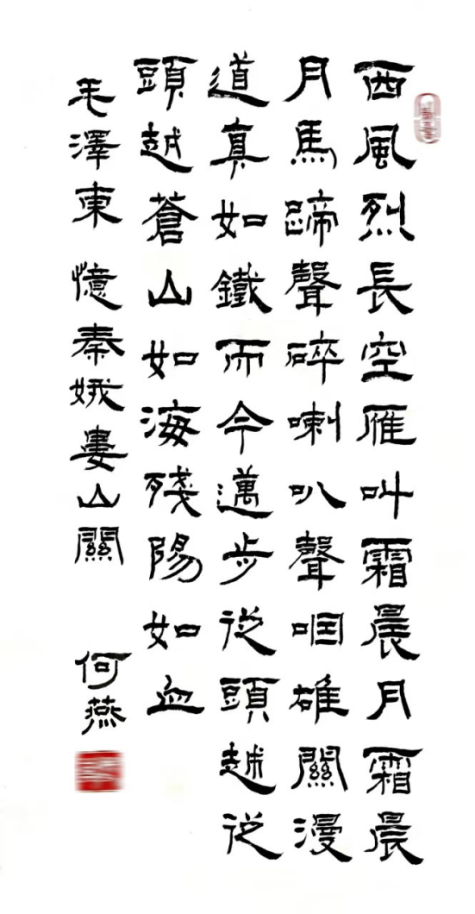 西風烈長空雁叫霜晨月霜晨
月馬蹄聲碎喇叭聲咽雄關漫
道真如鐵而今邁步從頭越從
頭越蒼山如海殘陽如血
毛澤東憶秦娥婁山關 何燕